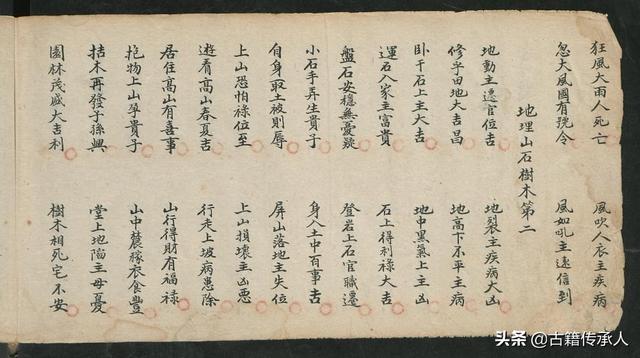 狂風大雨人死亡　風吹人衣主疾病
忽大風國有號令　風如吼主遠信到
地理山石樹木第二
地動主遷官位吉　地裂主疾病大凶
修平田地大吉昌　地高下不平主病
卧于石上主大吉　地中黑氣上主凶
運石入家主富貴　石上得利祿大吉
盤石安穩無憂疑　登岩上石官職遷
小石手弄生貴子　身入土中百事吉
自身取土被則辱　屏山落地主失位
上山恐怕祿位至　上山損壞主凶惡
遊看高山春夏吉　行走上坡病患除
居住高山有喜事　山行得財有福祿
抱物上山孕貴子　山中農稼衣食豐
枯木再發子孫興　堂上地陷主母憂
園林茂盛大吉利　樹木相死宅不安
头条 @古籍传承人